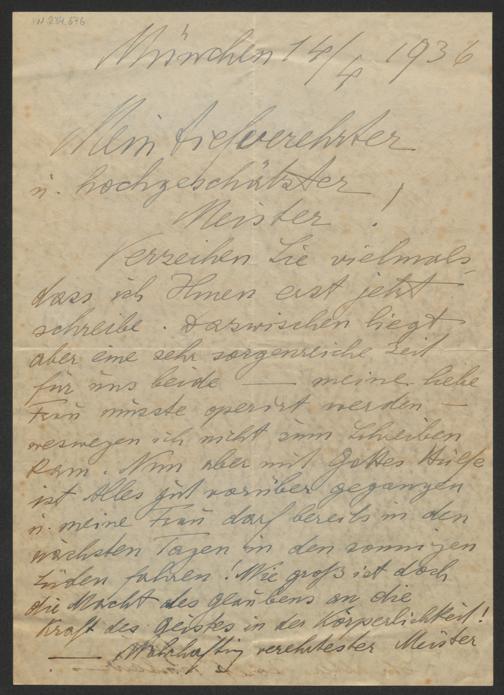 IN 214.676
München 14/4 1936
Mein tiefverehrter
u. hochgeschätzter
Meister!
Verzeihen Sie vielmals,
dass ich Ihnen erst jetzt
schreibe. Dazwischen liegt
aber eine sehr sorgenreiche Zeit
für uns beide — meine liebe
Frau musste operirt werden —
weswegen ich nicht zum Schreiben
kam. Nun aber mit Gottes Hülfe
ist Alles gut vorüber gegangen
u. meine Frau darf bereits in den
nächsten Tagen in den sonnigen
Süden fahren! Wie groß ist doch
die Macht des Glaubens an die
Kraft des Geistes in der Körperlichkeit!
— Wahrhaftig verehrtester Meister